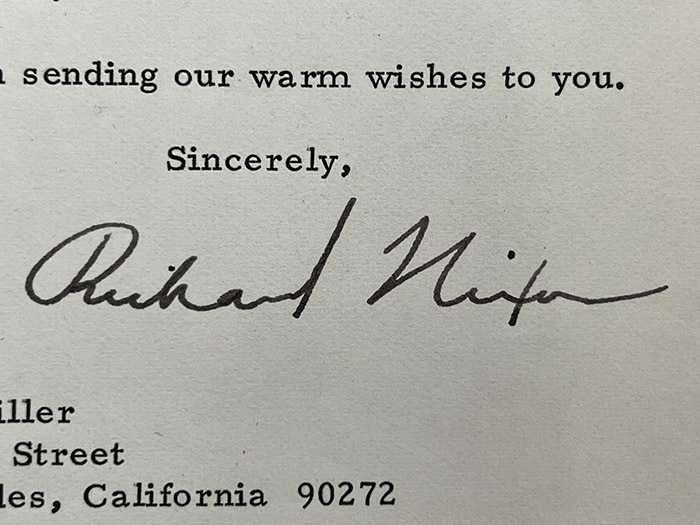 sending our warm wishes to you.
Sincerely,
Richard Nixon
iller
Street
les, California 90272